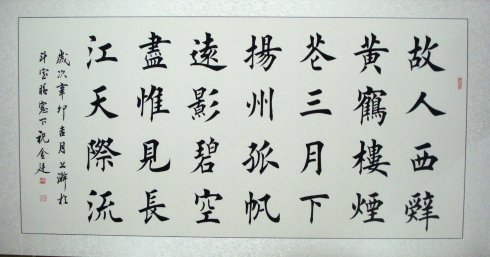 故人西辭
黃鶴樓煙
花三月下
揚州孤帆
遠影碧空
盡惟見長
江天際流
歲次辛卯吉月上澣於
斗室晴窓下祝金廷